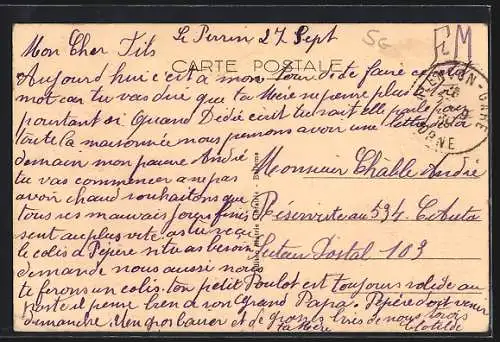 Le Perrin 27 Sept
Mon Cher Fils
CARTE POSTALE
5G
FM
Aujourd'hui c'est à mon tour de te faire ce petit
mot car tu vas dire que ta Mère ne pense plus à toi
pourtant si Quand Dédé écrit tu sait elle parle pour
toute la maisonnée nous pensons avoir une lettre
demain mon pauvre André
tu vas commencer a ne pas
avoir chaud souhaitons que
tous ses mauvais jours finis
sent au plus vite as tu reçu
le colis à Pépère si tu as besoin
demande nous aussi nous
te ferons un colis ton petit Poulot est toujours
poste il pense bien a son Grand Papa. Pépère doit venir
dimanche Un gros baiser et de grosses bises de nous trois
ta Mère Clotilde
Monsieur Châble André
Réserviste au 534 C Auto
Secteur Postal 103
GARE